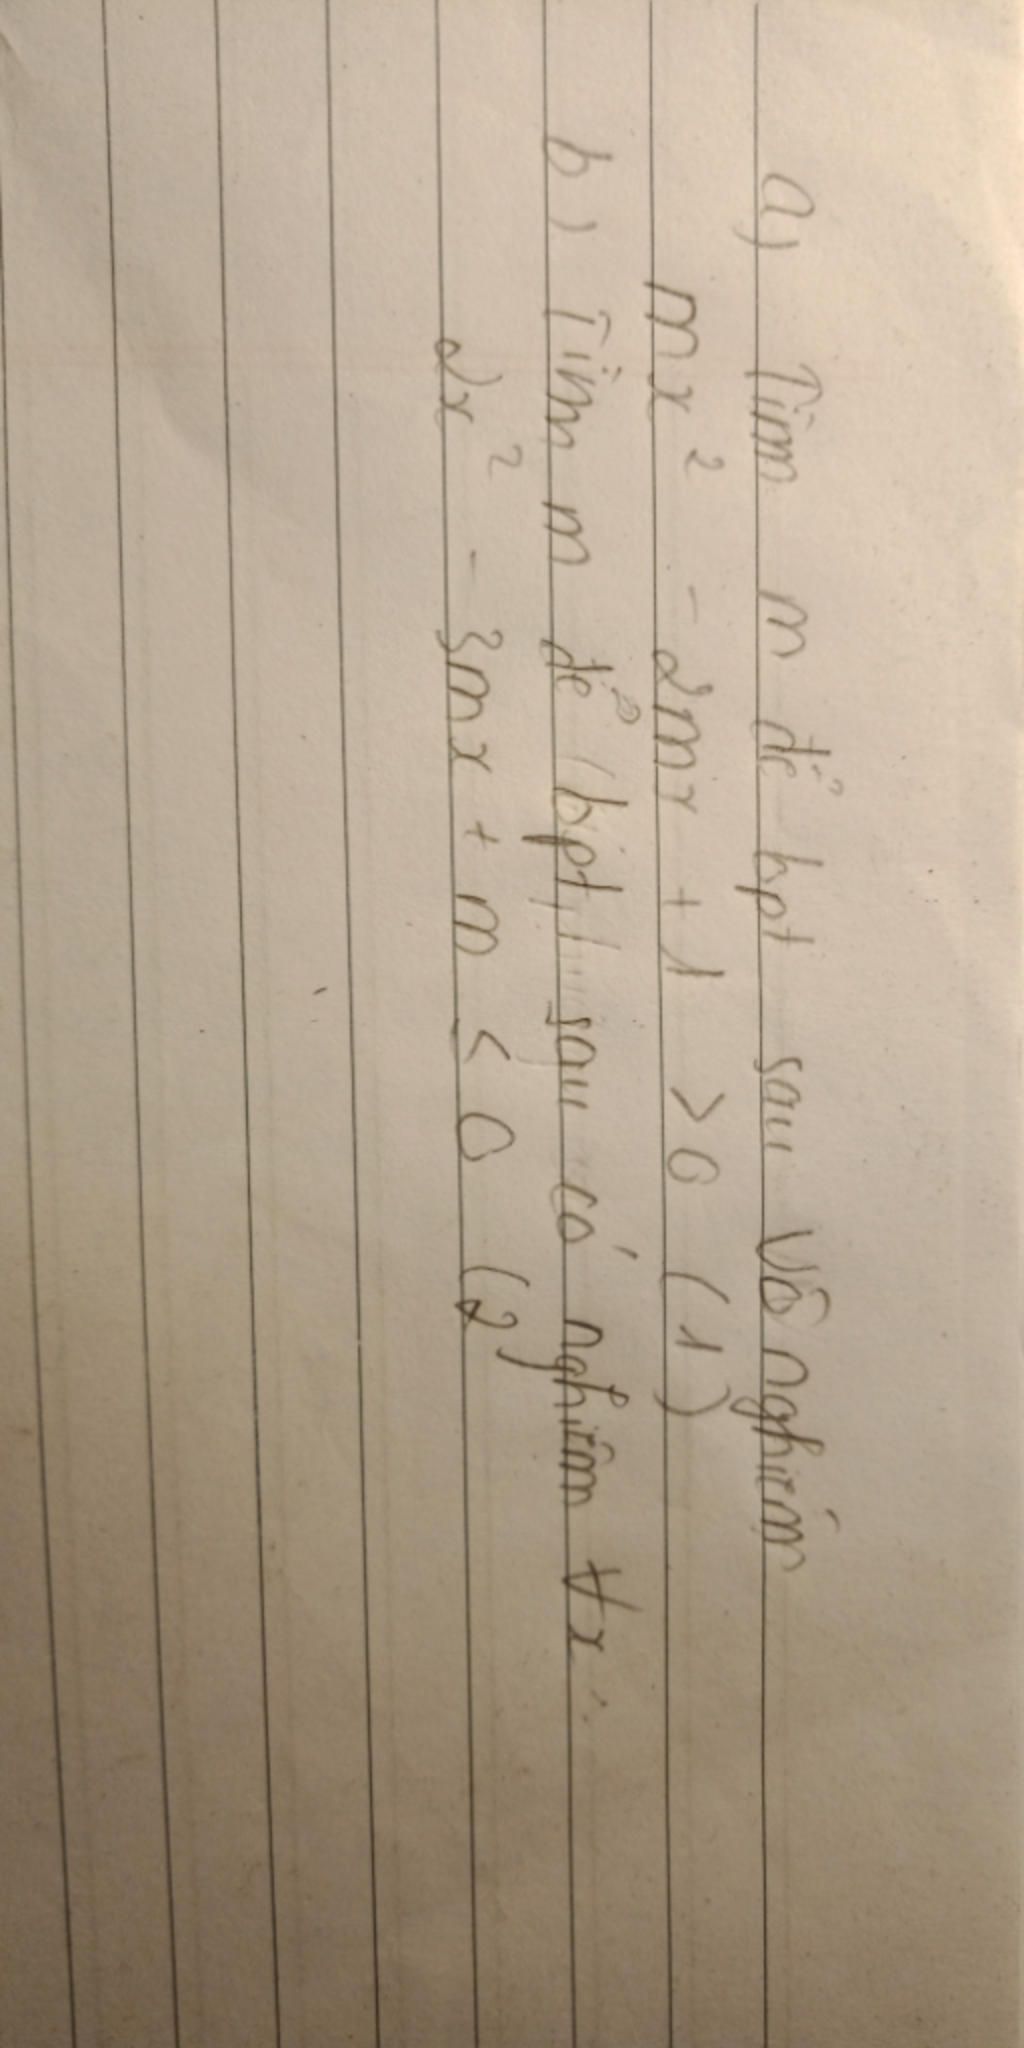 a) Tìm m để bpt sau vô nghiệm
mx² - 2mx + 1 > 0 (1)
b) Tìm m để bpt sau có nghiệm ∀x.
2x² - 3mx + m < 0 (2)